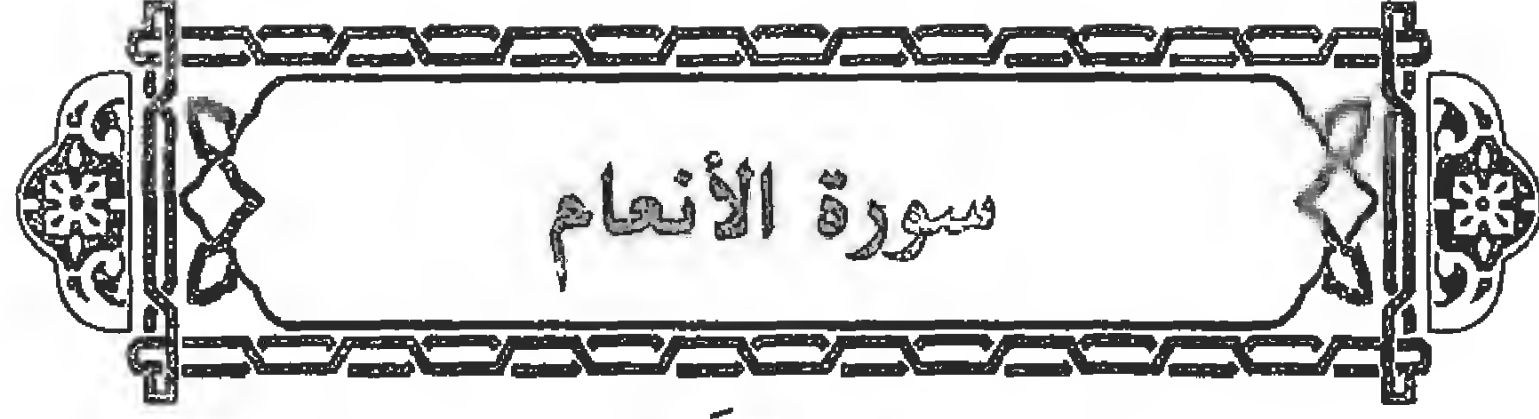 سورة الأنعام